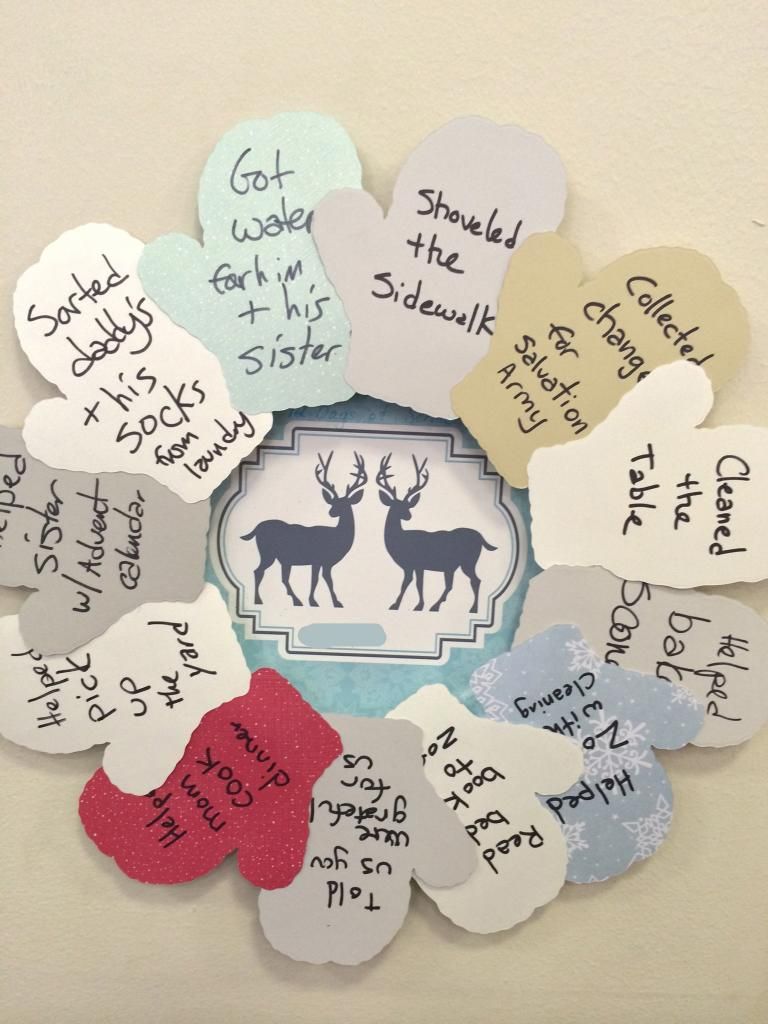 Got
water
for him
+ his
sister
Shoveled
the
Sidewalk
Collected
change
for
Salvation
Army
Cleaned
the
Table
Helped
Helped
No
with
Cleaning
Read
bed
book
to
No
Told
us you
were
grateful
for
us
Helped
mom
cook
dinner
Helped
pick
up
the
yard
Helped
sister
w/ Advent
calendar
Sorted
daddy's
+ his
socks
from
laundry
Days of